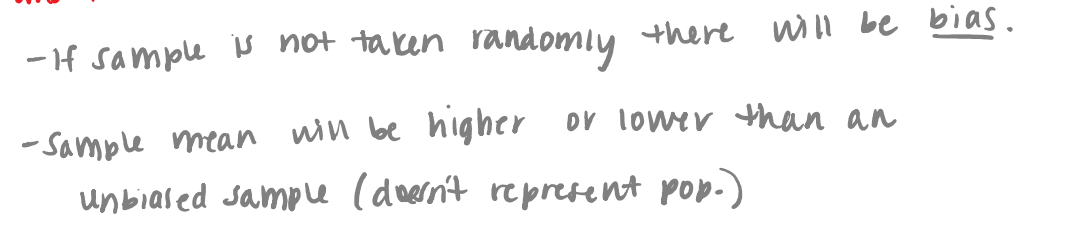 -If sample is not taken randomly there will be bias.
-Sample mean will be higher or lower than an
unbiased sample (doesn't represent pop.)